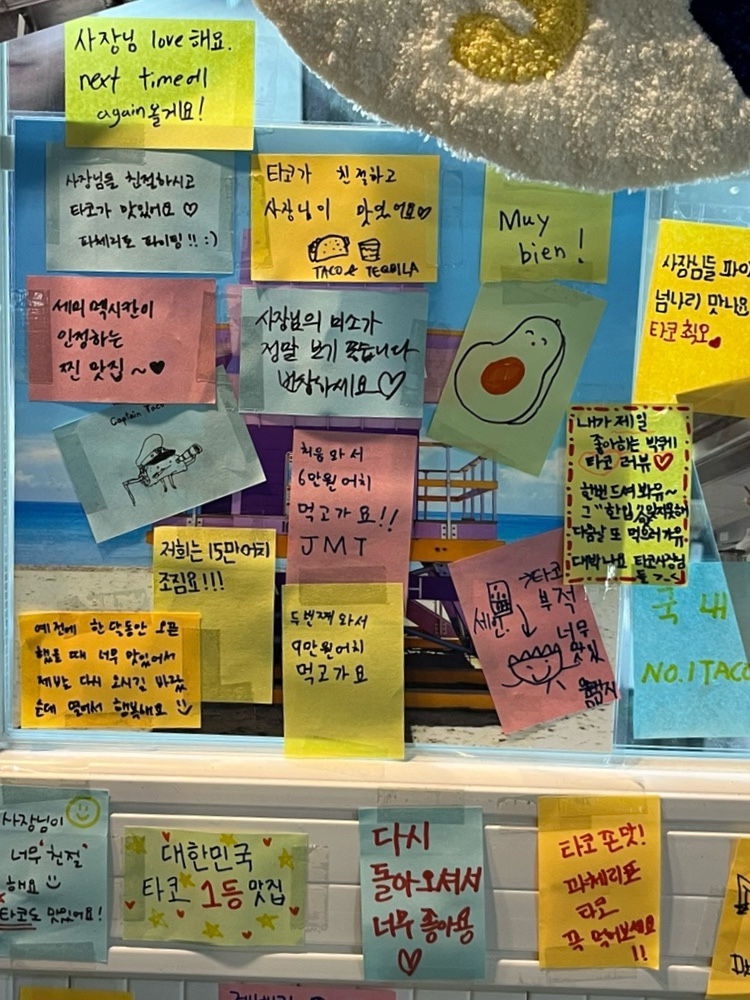 사장님 love 해요.
next time에
again올게요!
사장님들 친절하시고
타코가 맛있어요 ♡
파체리토 파이팅!! :)
타코가 친절하고
사장님이 맛있어요♡
TACO & TEQUILA
Muy
bien!
사장님들
넘나리
타코 최오
세의 멕시칸이
인정하는
찐 맛집~♥
사장님의 미소가
정말 보기 좋습니다
번창하세요♡
Captain Taco
처음 와서
6만원어치
먹고가요!!
JMT
내가 제일
좋아하는
타코 러뷰♡
한번 드셔 봐유~
그 "한입"
다음날 또 먹으러 가유.
대박나요 타코사장님
저희는 15만어치
조짐요!!!
두번째 와서
9만원어치
먹고가요
타코
부적
너무
맛있
예전에 한 닥동안 오픈
했을 때 너무 맛있어서
제발 다시 오시길 바랐
는데 열어서 행복해요
국내
NO.1 TACO
사장님이
너무 친절
해요
타코도 맛있어요!
대한민국
타코 1등 맛집
다시
돌아오셔서
너무 좋아용
♡
타코 쫀맛!
파체리토
타코
꼭 먹어보세요
!!